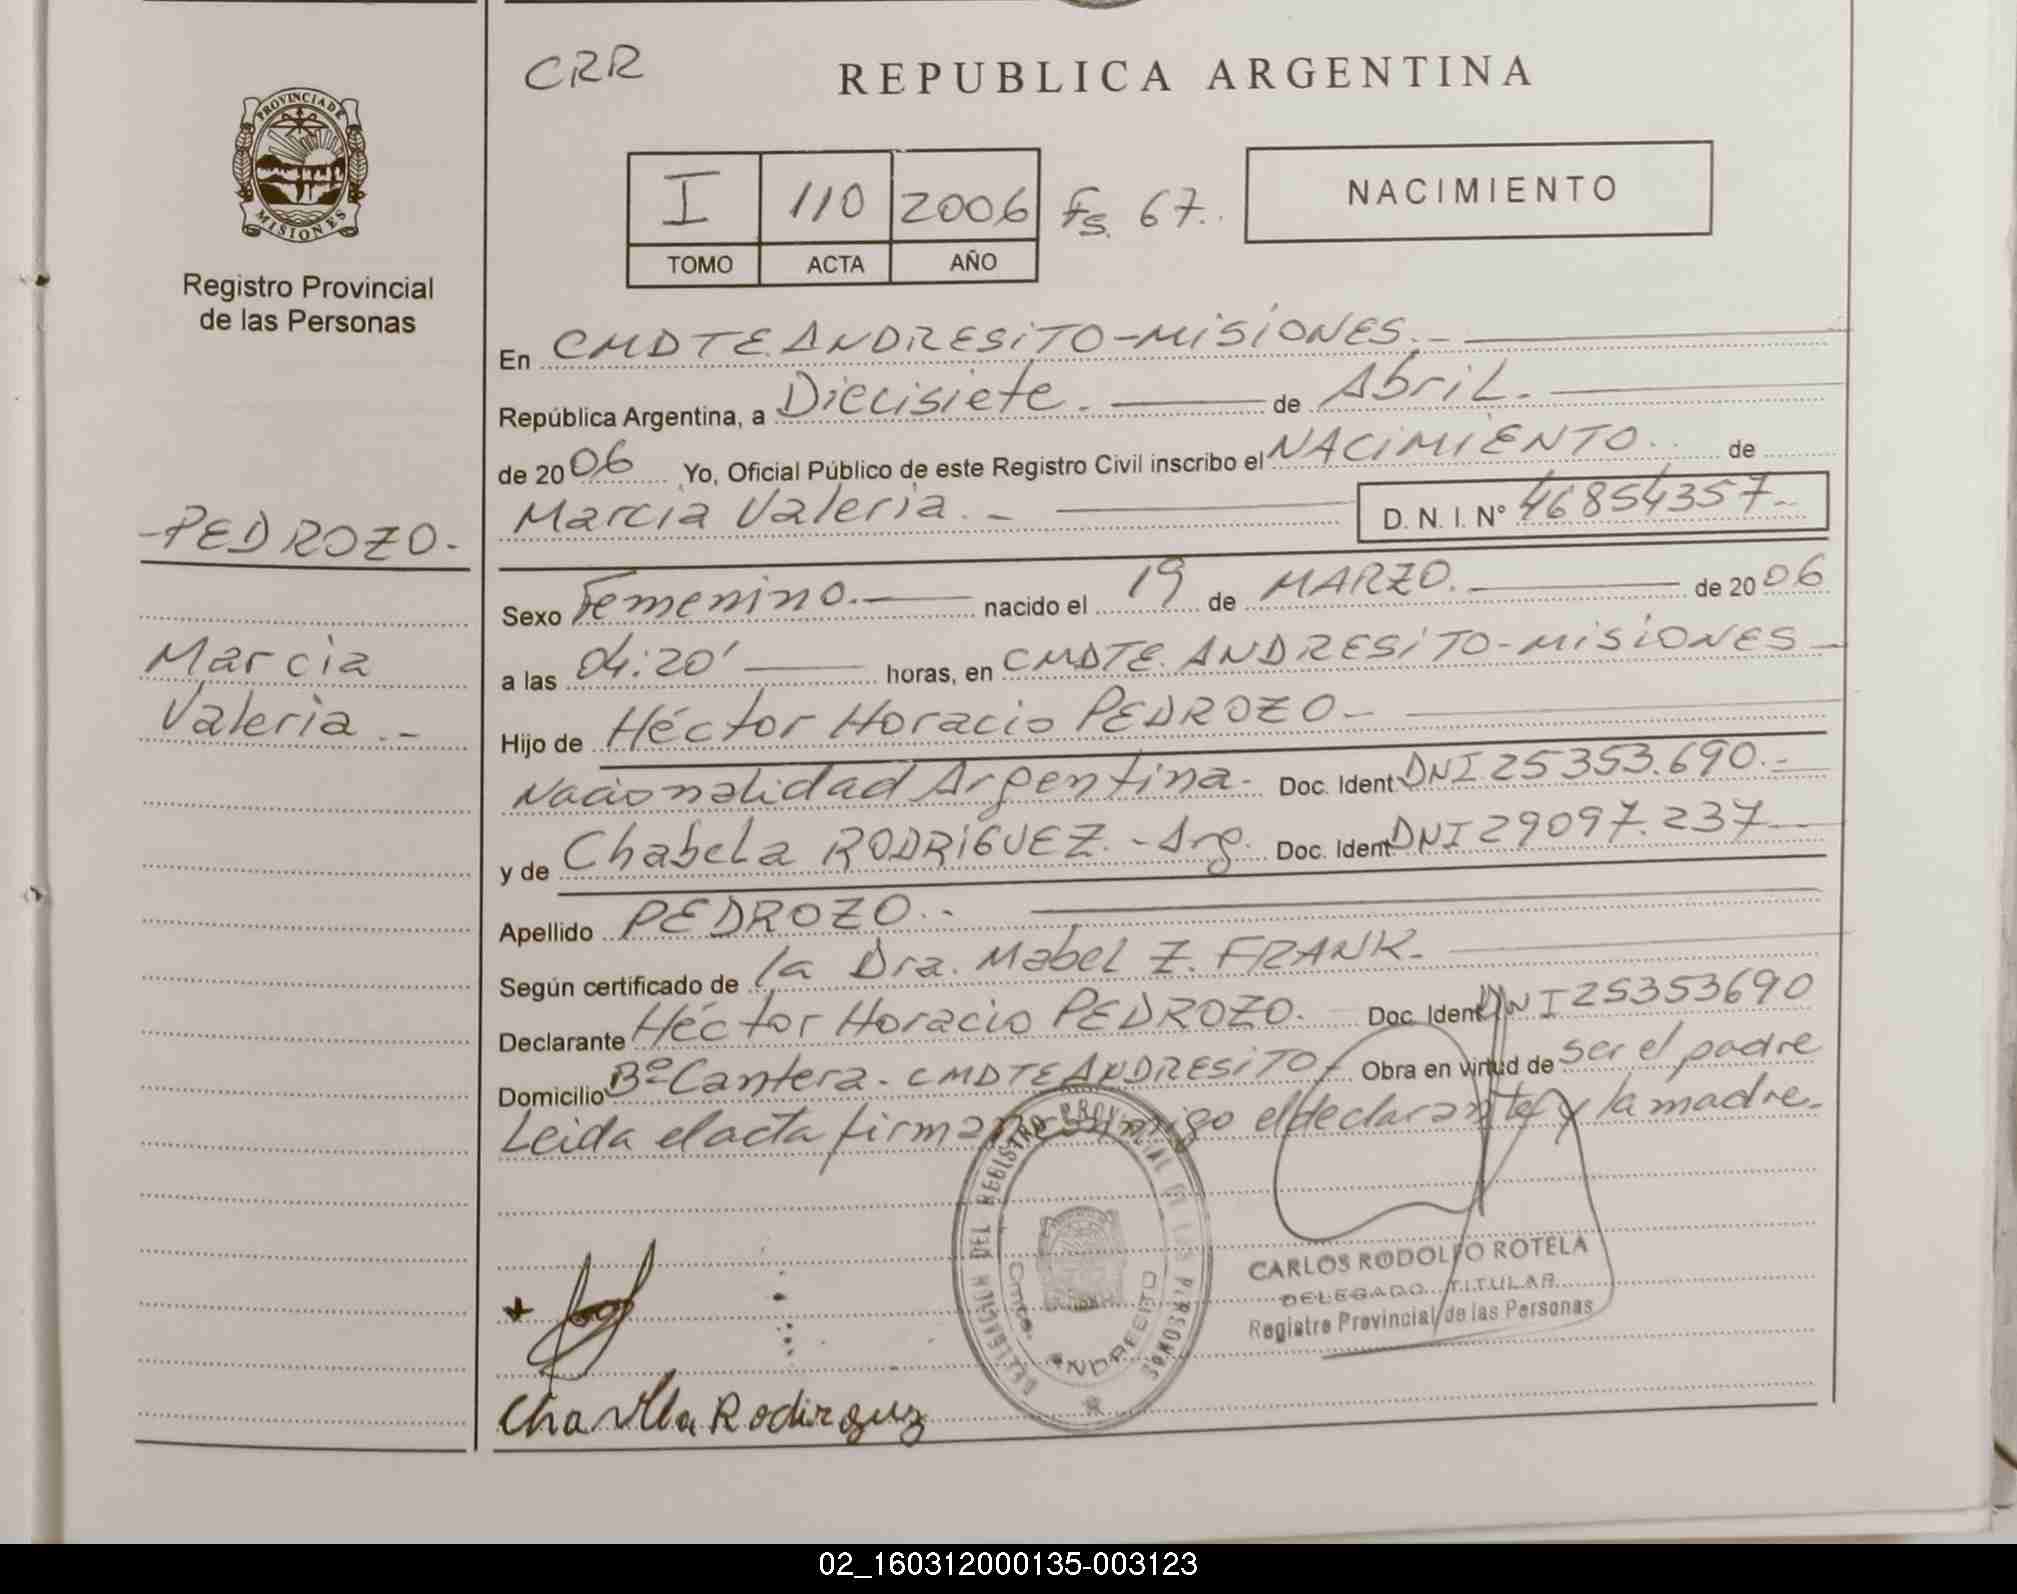 CRR
REPUBLICA ARGENTINA
PROVINCIA DE
MISIONES
Registro Provincial
de las Personas
I 110 2006 Fs. 67..
TOMO ACTA AÑO
NACIMIENTO
En CMDTE. ANDRESITO-MISIONES.-
República Argentina, a Diecisiete. de Abril.
de 2006 Yo, Oficial Público de este Registro Civil inscribo el NACIMIENTO.. de
Marcia Valeria.- D. N. I. N° 46854357-
-PEDROZO.-
Marcia
Valeria.-
Sexo Femenino.- nacido el 19 de MARZO. de 2006
a las 04:20' horas, en CMDTE. ANDRESITO-MISIONES
Hijo de Héctor Horacio PEDROZO-
Nacionalidad Argentina- Doc. Ident DNI 25353.690.-
y de Chabela RODRIGUEZ.-Arg. Doc. Ident DNI 29097.237
Apellido PEDROZO.-
Según certificado de la Dra. Mabel Z. FRANK.
Declarante Héctor Horacio PEDROZO. Doc. Ident DNI 25353690
Domicilio Bº Cantera. CMDTE ANDRESITO- Obra en virtud de ser el padre
Leida el acta firman conmigo el declarante y la madre.
DELEGACION DEL REGISTRO PROVINCIAL DE LAS PERSONAS
CMDTE. ANDRESITO
CARLOS RODOLFO ROTELA
DELEGADO TITULAR
Registro Provincial de las Personas
02_160312000135-003123